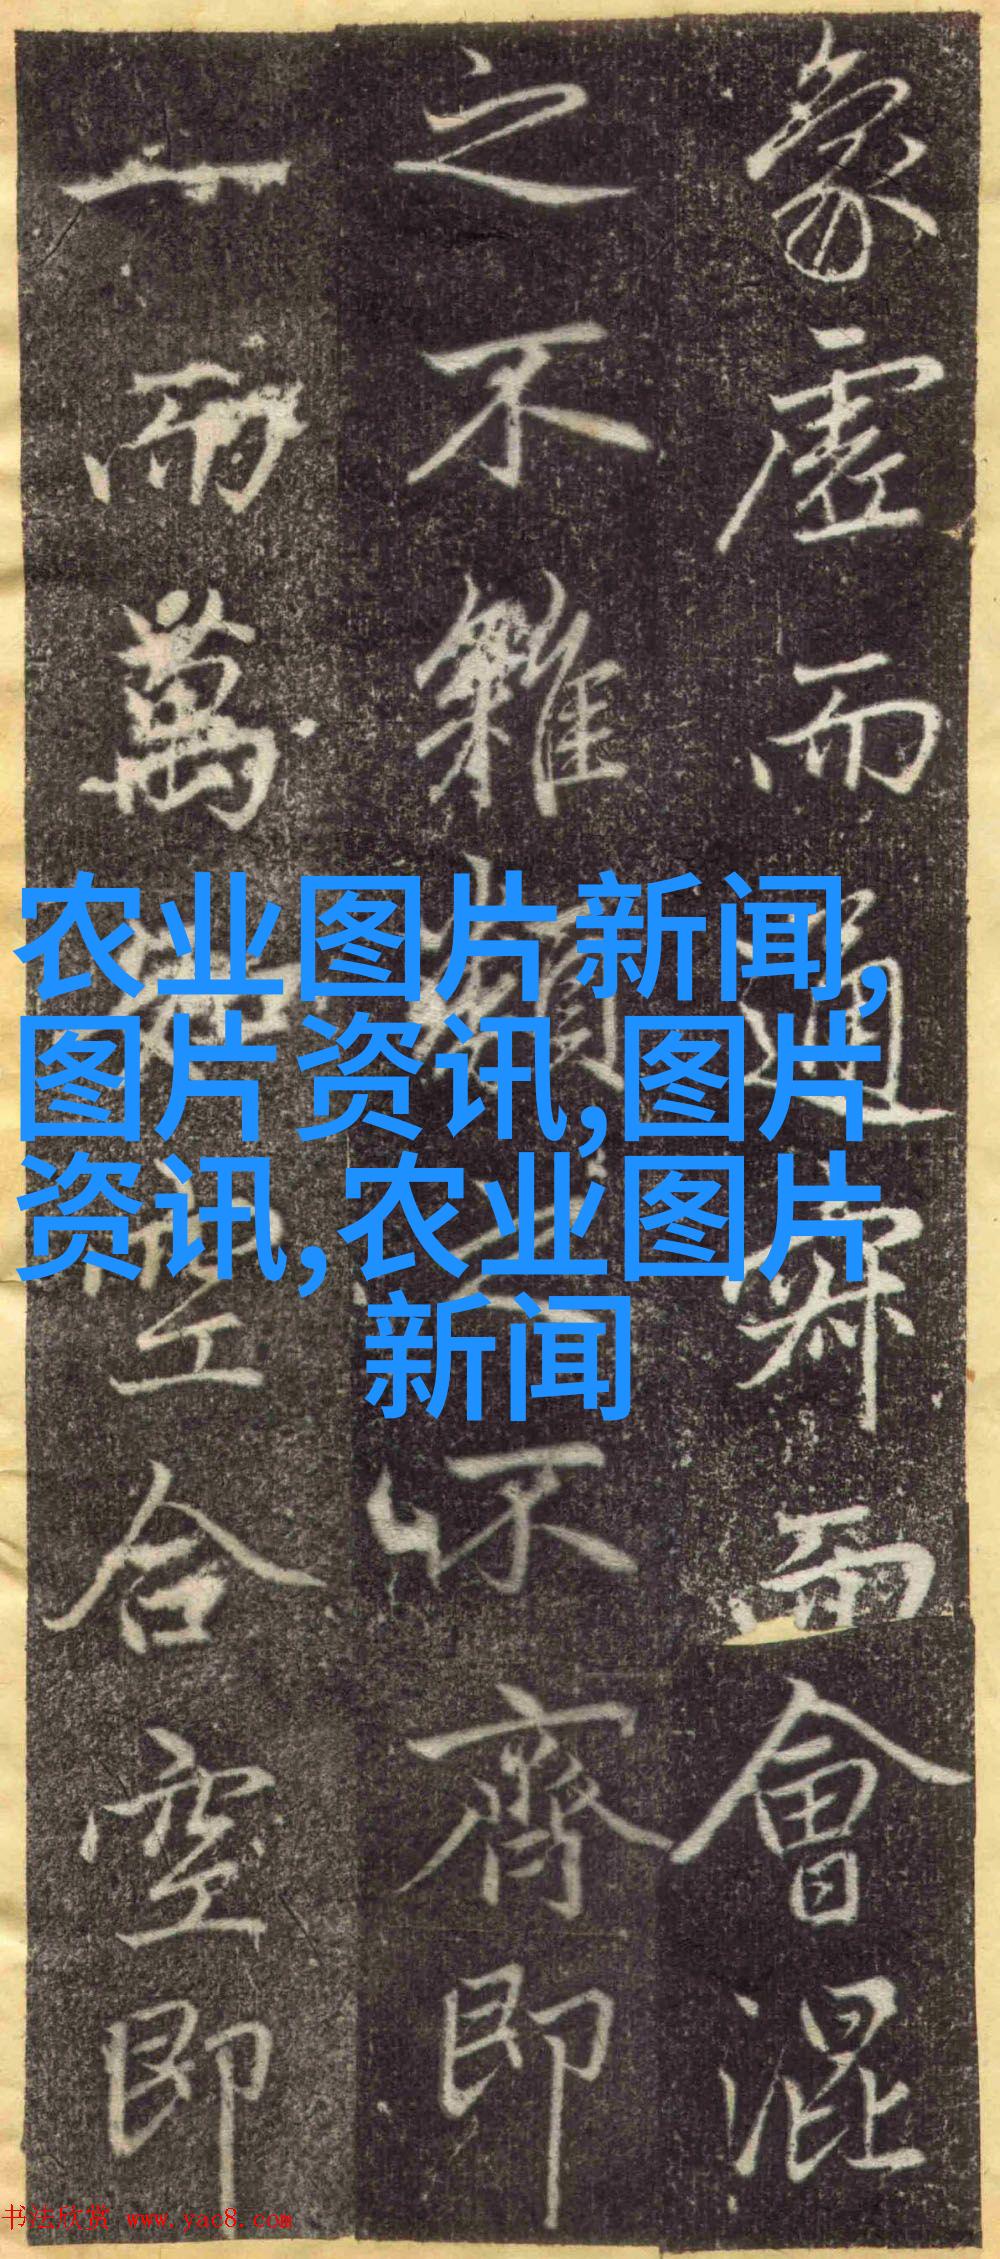 象虛而通而會混
之不雜類之不齊即
一而萬空合空即
农业图片新闻,
图片资讯,图片
资讯,农业图片
新闻
书法欣赏 www.yac8.com